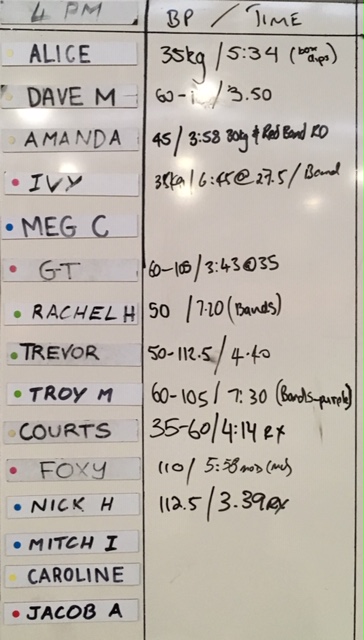 4 PM BP / TIME
ALICE 35kg / 5:34 (box dips)
DAVE M 60- / 3.50
AMANDA 45 / 3:58 30kg & Red Band RD
IVY 35kg / 6:45@27.5 / Band
MEG C
GT 60-105 / 3:43@35
RACHEL H 50 / 7.20 (Bands)
TREVOR 50-112.5 / 4.40
TROY M 60-105 / 7:30 (Bands-purple)
COURTS 35-60 / 4:14 RX
FOXY 110 / 5:58 mod
NICK H 112.5 / 3.39 RX
MITCH I
CAROLINE
JACOB A